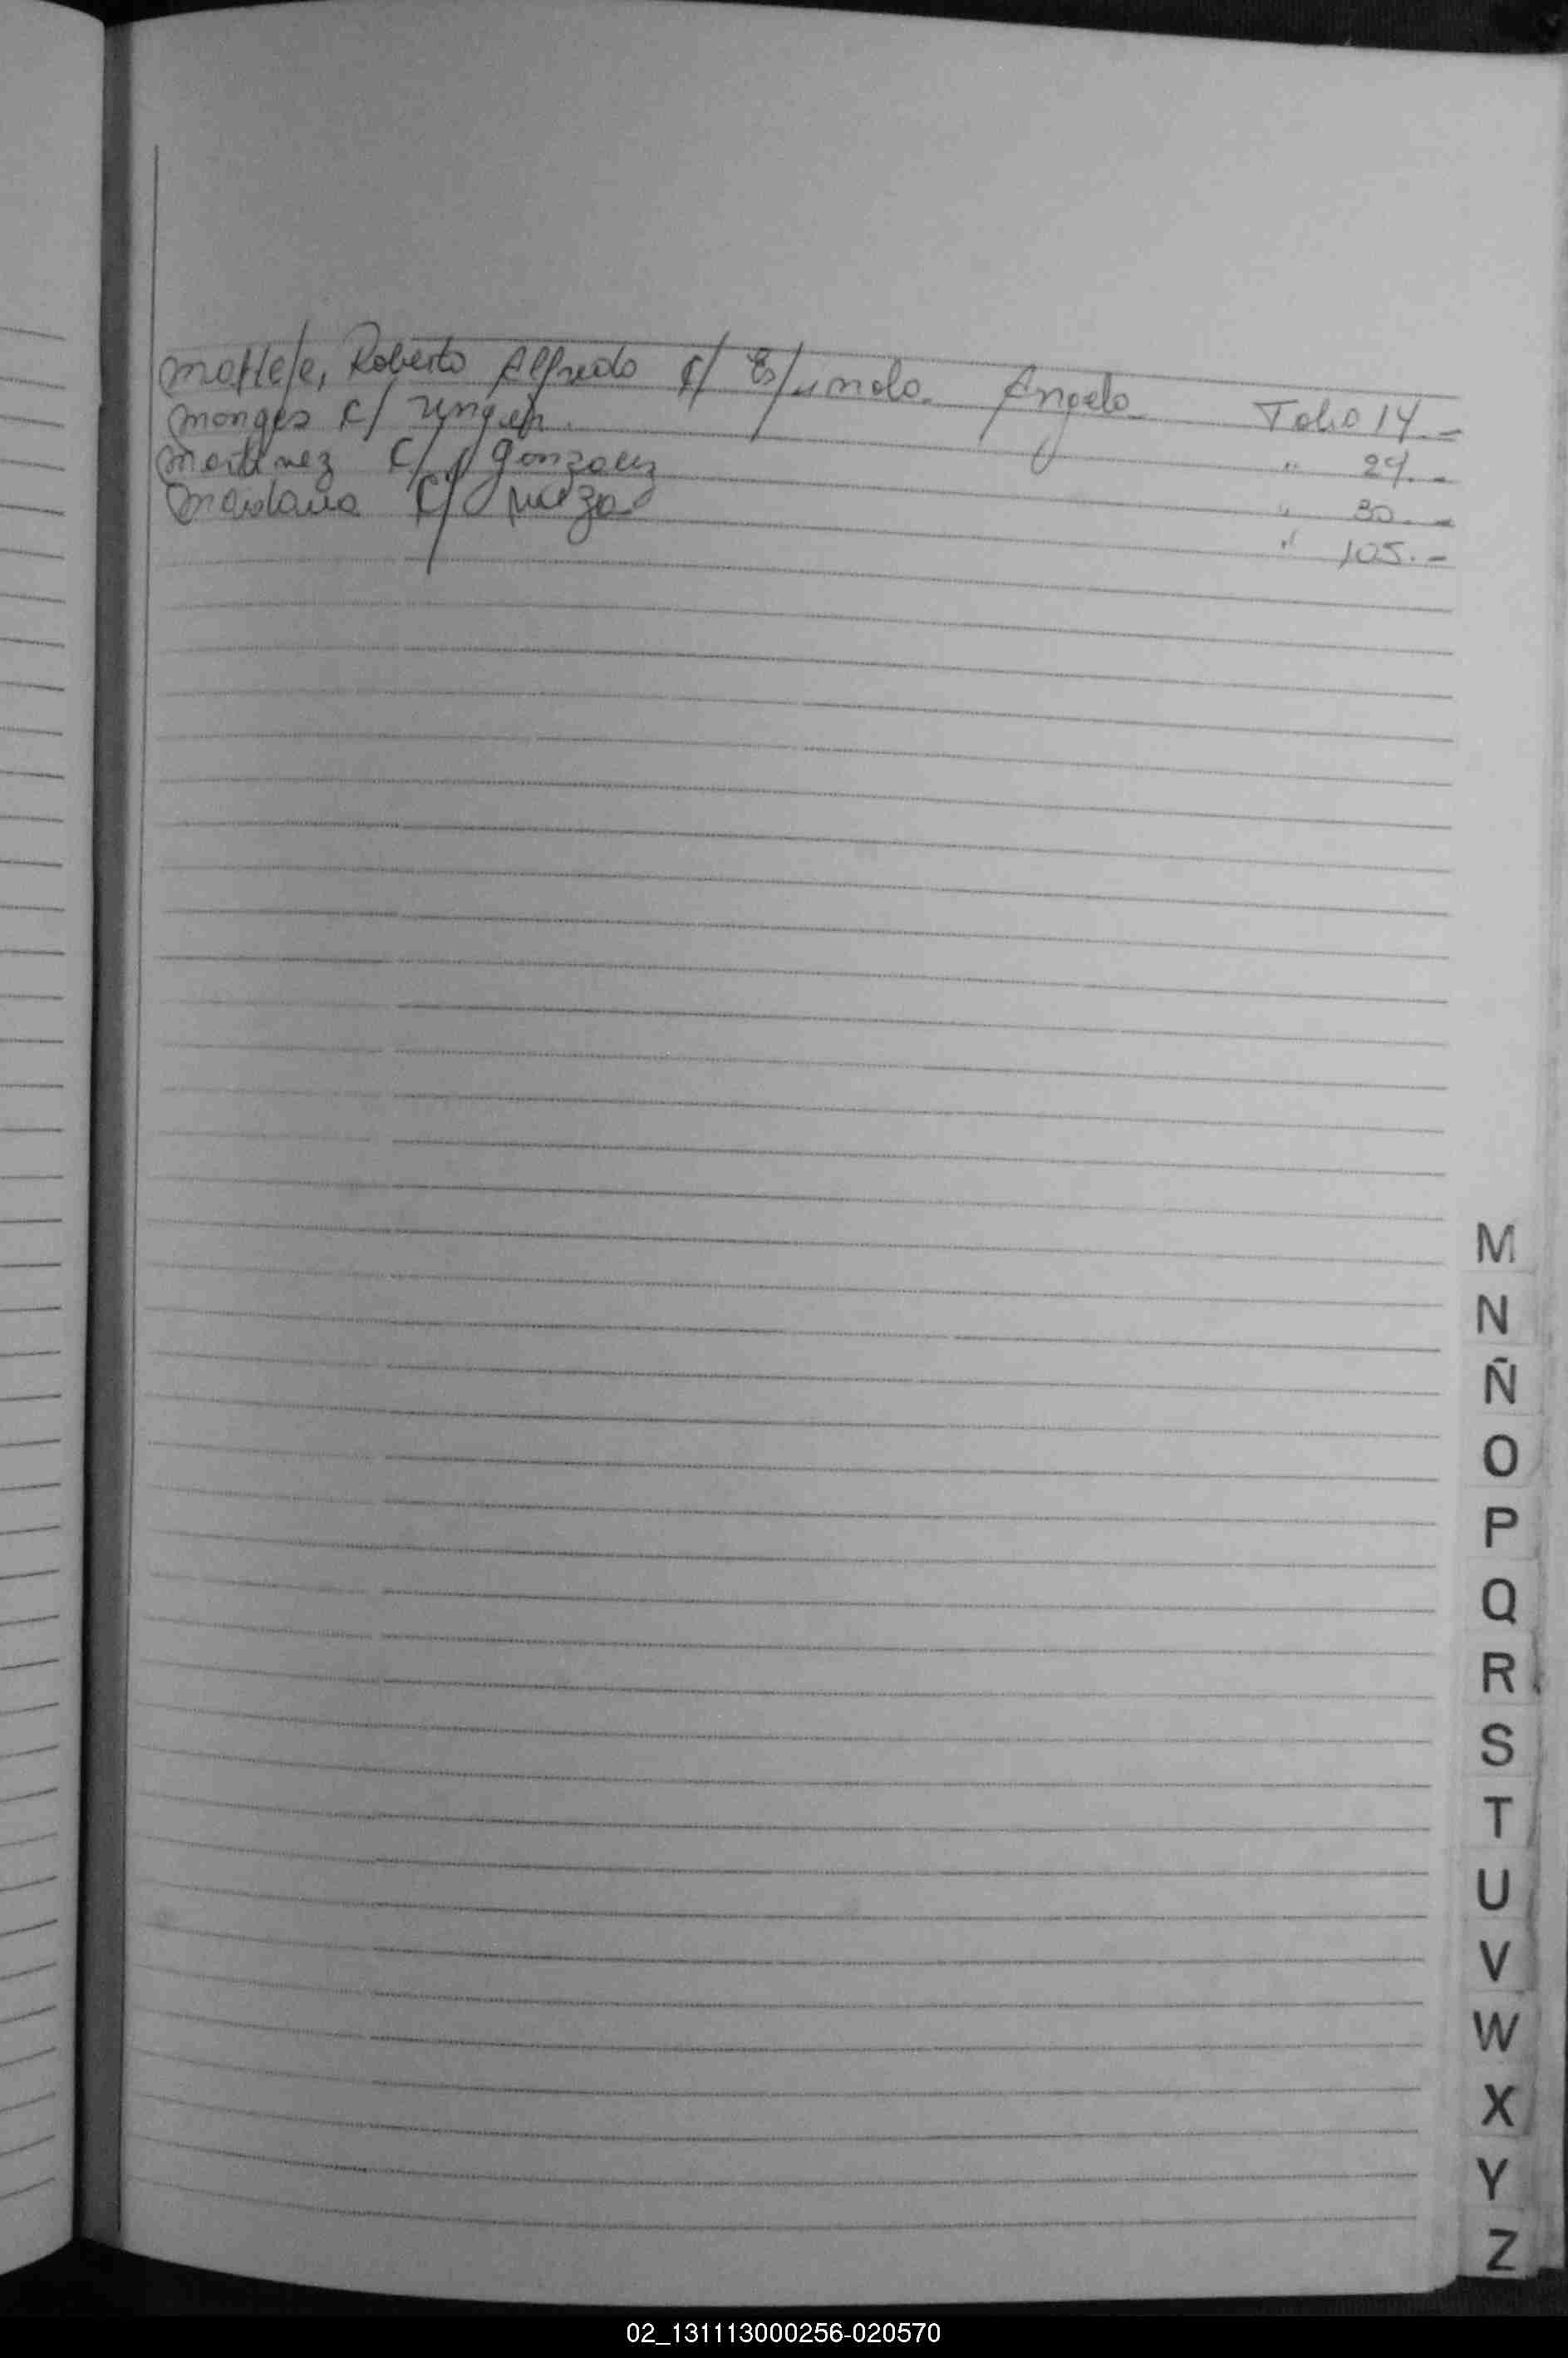 Roberto Alfredo c/ Angela Folio 14.-
Monges c/ " 24.-
Martinez c/ Gonzalez " 30.-
Maidana c/ Meza " 105.-
M
N
Ñ
O
P
Q
R
S
T
U
V
W
X
Y
Z
02_131113000256-020570